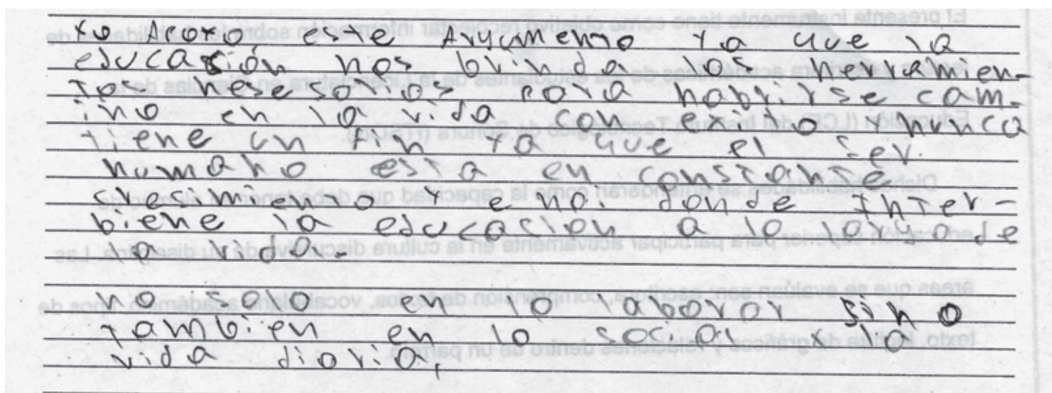 Yo Apoyo este Argumento ya que la
educasión nos brinda las herramien-
tas nesesarias para habrirse cam-
ino en la vida con exito y nunca
tiene un fin ya que el ser
humano esta en constante
cresimiento y en donde Inter-
biene la educasion a lo largo de
la vida.
no solo en lo laboral sino
tambien en lo social y la
vida diaria,